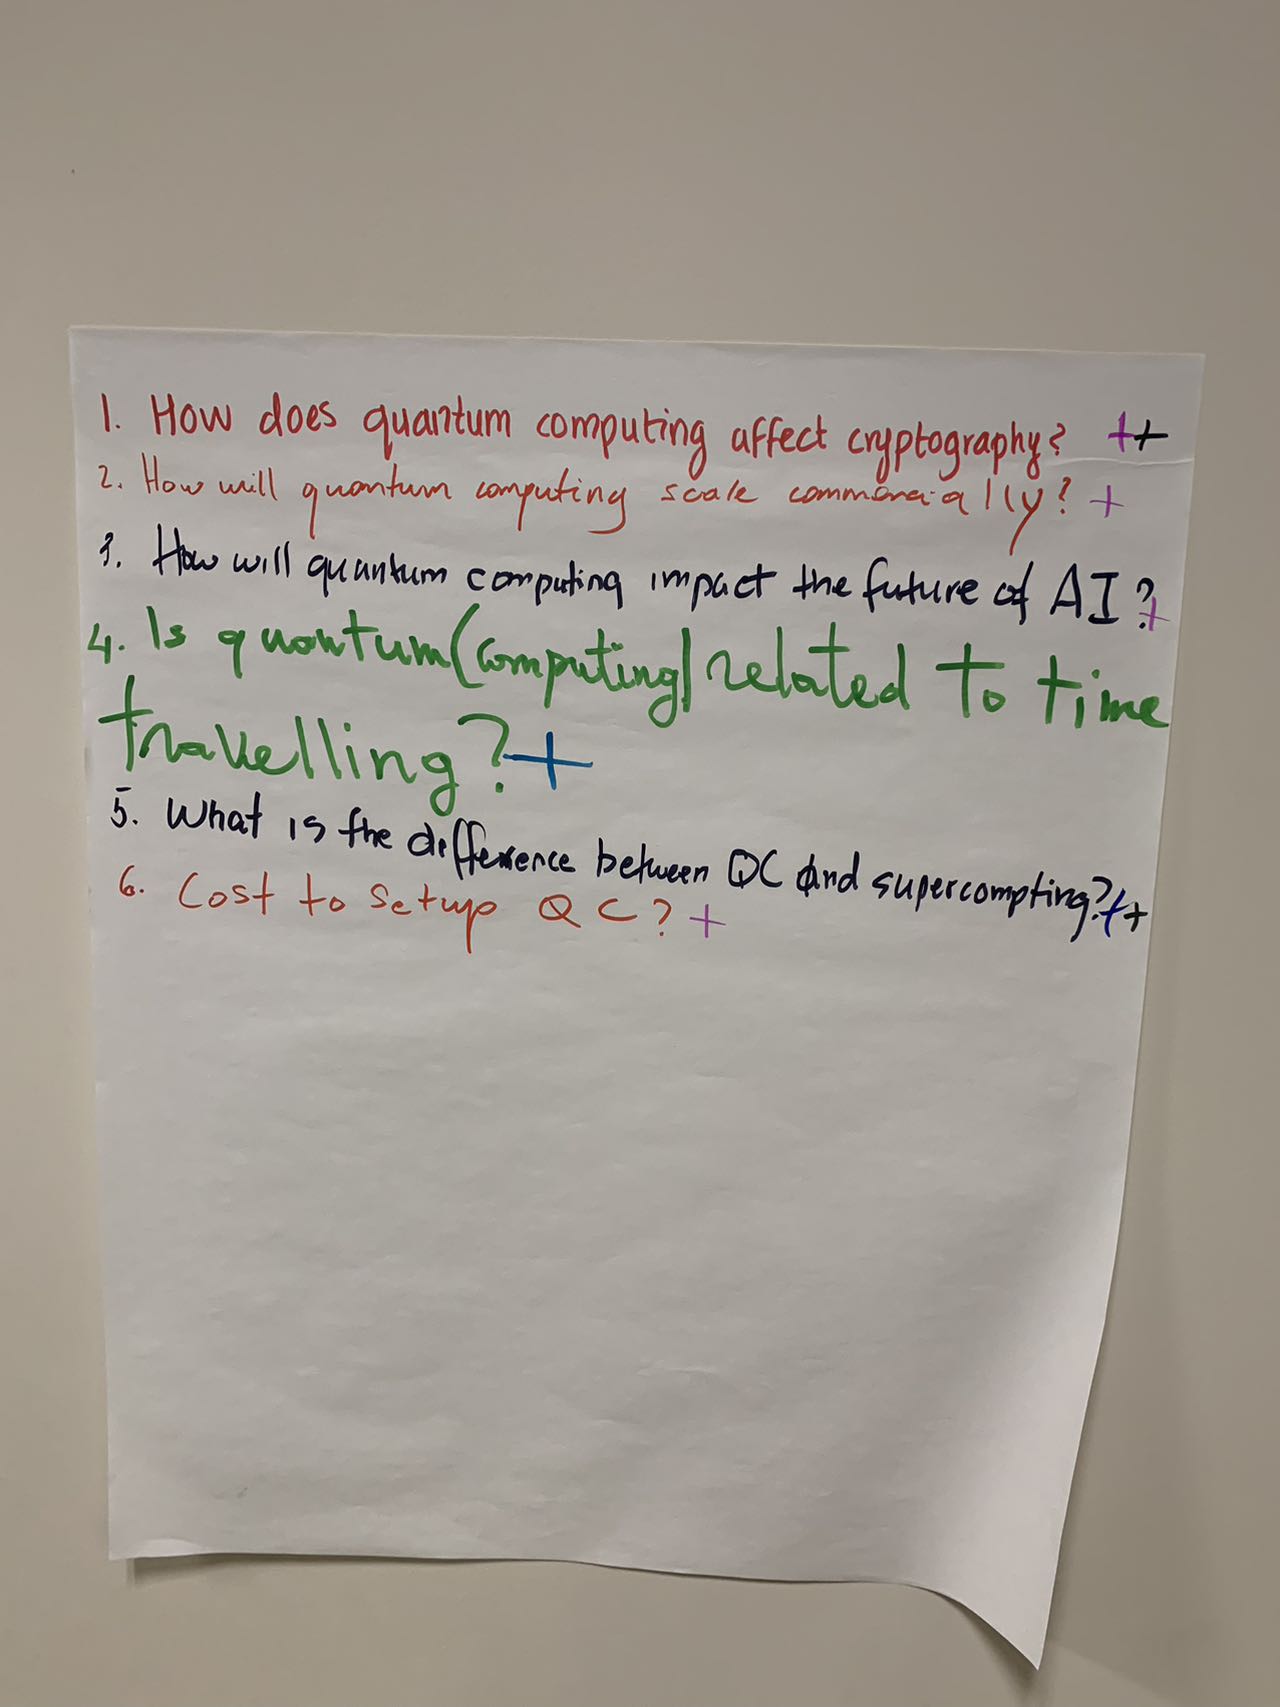 1. How does quantum computing affect cryptography? ++
2. How will quantum computing scale commercially? +
3. How will quantum computing impact the future of AI? +
4. Is quantum (computing) related to time
travelling? +
5. What is the difference between QC and supercompting? ++
6. Cost to setup QC? +